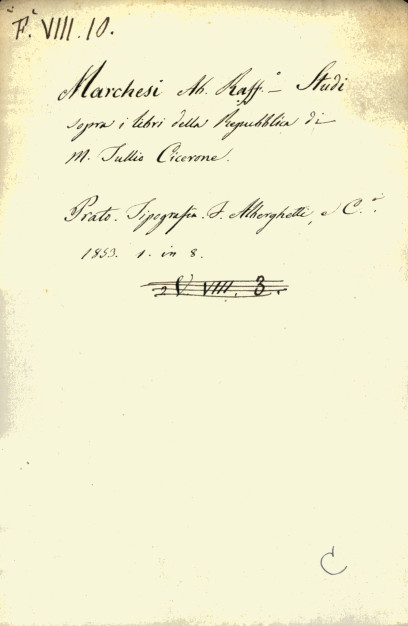 F. VIII. 10.
Marchesi Ab. Raff.º — Studi
sopra i libri della Repubblica di
M. Tullio Cicerone.
Prato. Tipografia. F. Alberghetti, e C.i.
1853. 1. in 8.
2 V VIII. 3.
C